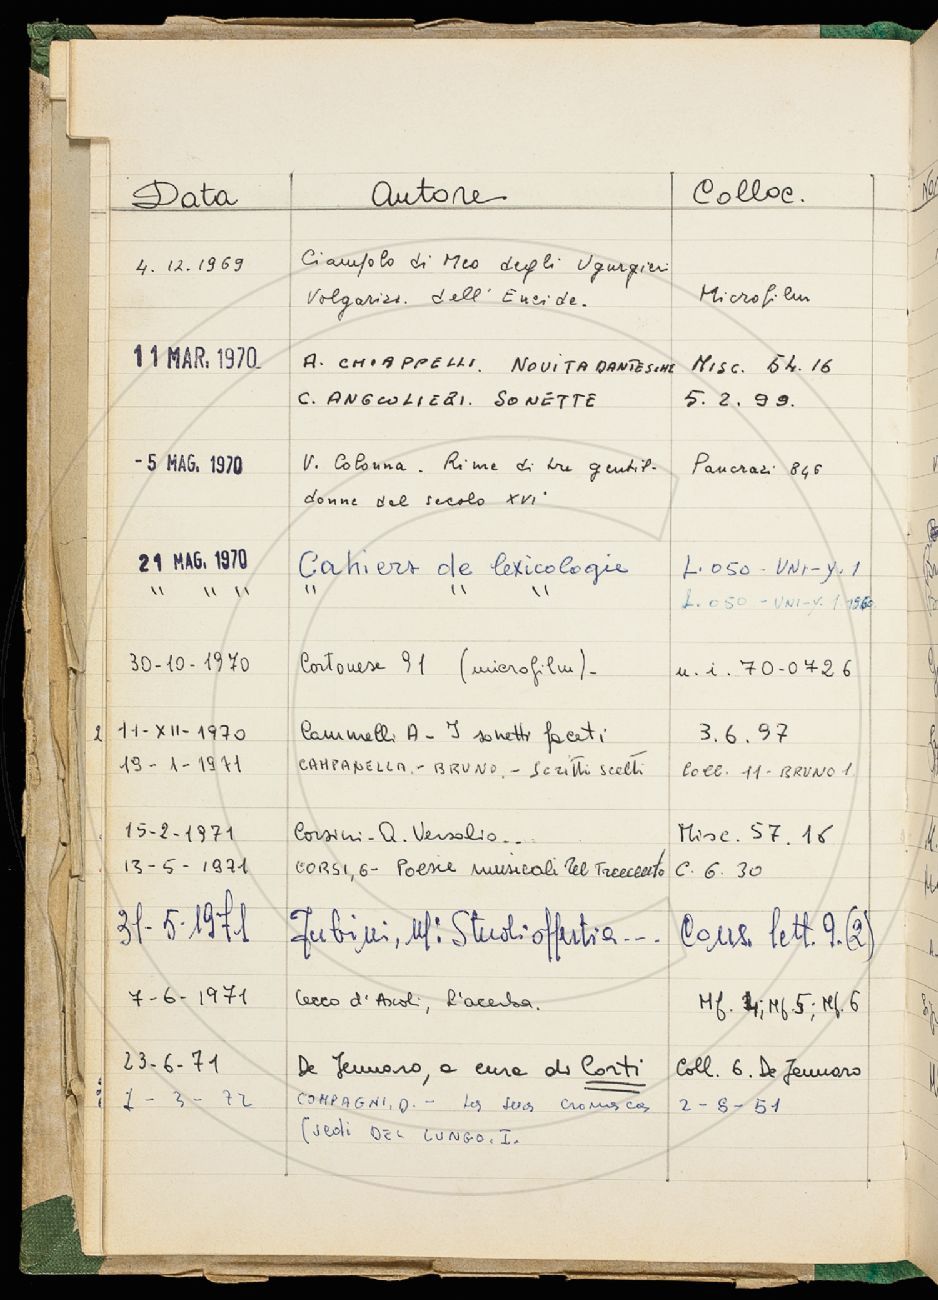 Data Autore Colloc.
4. 12. 1969 Ciampolo di Meo degli Ugurgieri
Volgarizz. dell' Eneide. Microfilm
11 MAR. 1970 A. CHIAPPELLI. NOVITA DANTESCHE MISC. 54. 16
C. ANGIOLIERI. SONETTE 5. 2. 99.
-5 MAG. 1970 V. Colonna. Rime di tre gentil- Pancrazi 846
donne del secolo XVI
21 MAG. 1970 Cahiers de lexicologie L. 050 - UNI - Y. 1
" " " " " " L. 050 - UNI - Y. 1 1960
30-10-1970 Cortonese 91 (microfilm)- n. i. 70-0726
2 11-XII-1970 Cammelli A - I sonetti faceti 3.6.97
19-1-1971 CAMPANELLA.- BRUNO.- Scritti scelti Coll. 11- BRUNO 1.
15-2-1971 Corsini - A. Versalio... Misc. 57. 16
13-5-1971 CORSI, G- Poesie musicali del Trecento C. 6. 30
31-5-1971 Fubini, M: Studi offerti a --- Cons. lett. 9.(2)
7-6-1971 Cecco d'Ascoli, L'acerba. Mf. 4; Mf. 5; Mf. 6
23-6-71 De Jennaro, a cura di Corti Coll. 6. De Jennaro
1-3-72 COMPAGNI, D. - La sua cronaca 2-8-51
(sedi DEL LUNGO. I.